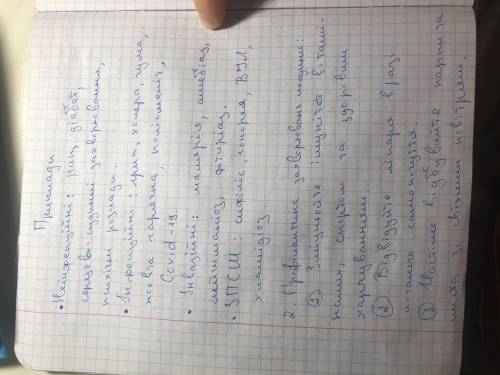 Приклади
• Неінфекційні: рак, діабет,
серцево-судинні захворювання,
психічні розлади.
• Інфекційні: грип, холера, чума,
жовта гарячка, поліомієліт,
Covid-19.
• Інвазійні: малярія, амебіаз,
лейшманіоз, фтиріаз.
• ЗПСШ: сифіліс, гонорея, ВІЛ,
хламідіоз
2. Профілактика захворювань людини:
① Зміцнюйте імунітет вітамі-
нами, спортом та здоровим
харчуванням.
② Відвідуйте лікаря в разі
поганого самопочуття.
③ Частіше відвідуйте парки та
міста з свіжим повітрям.